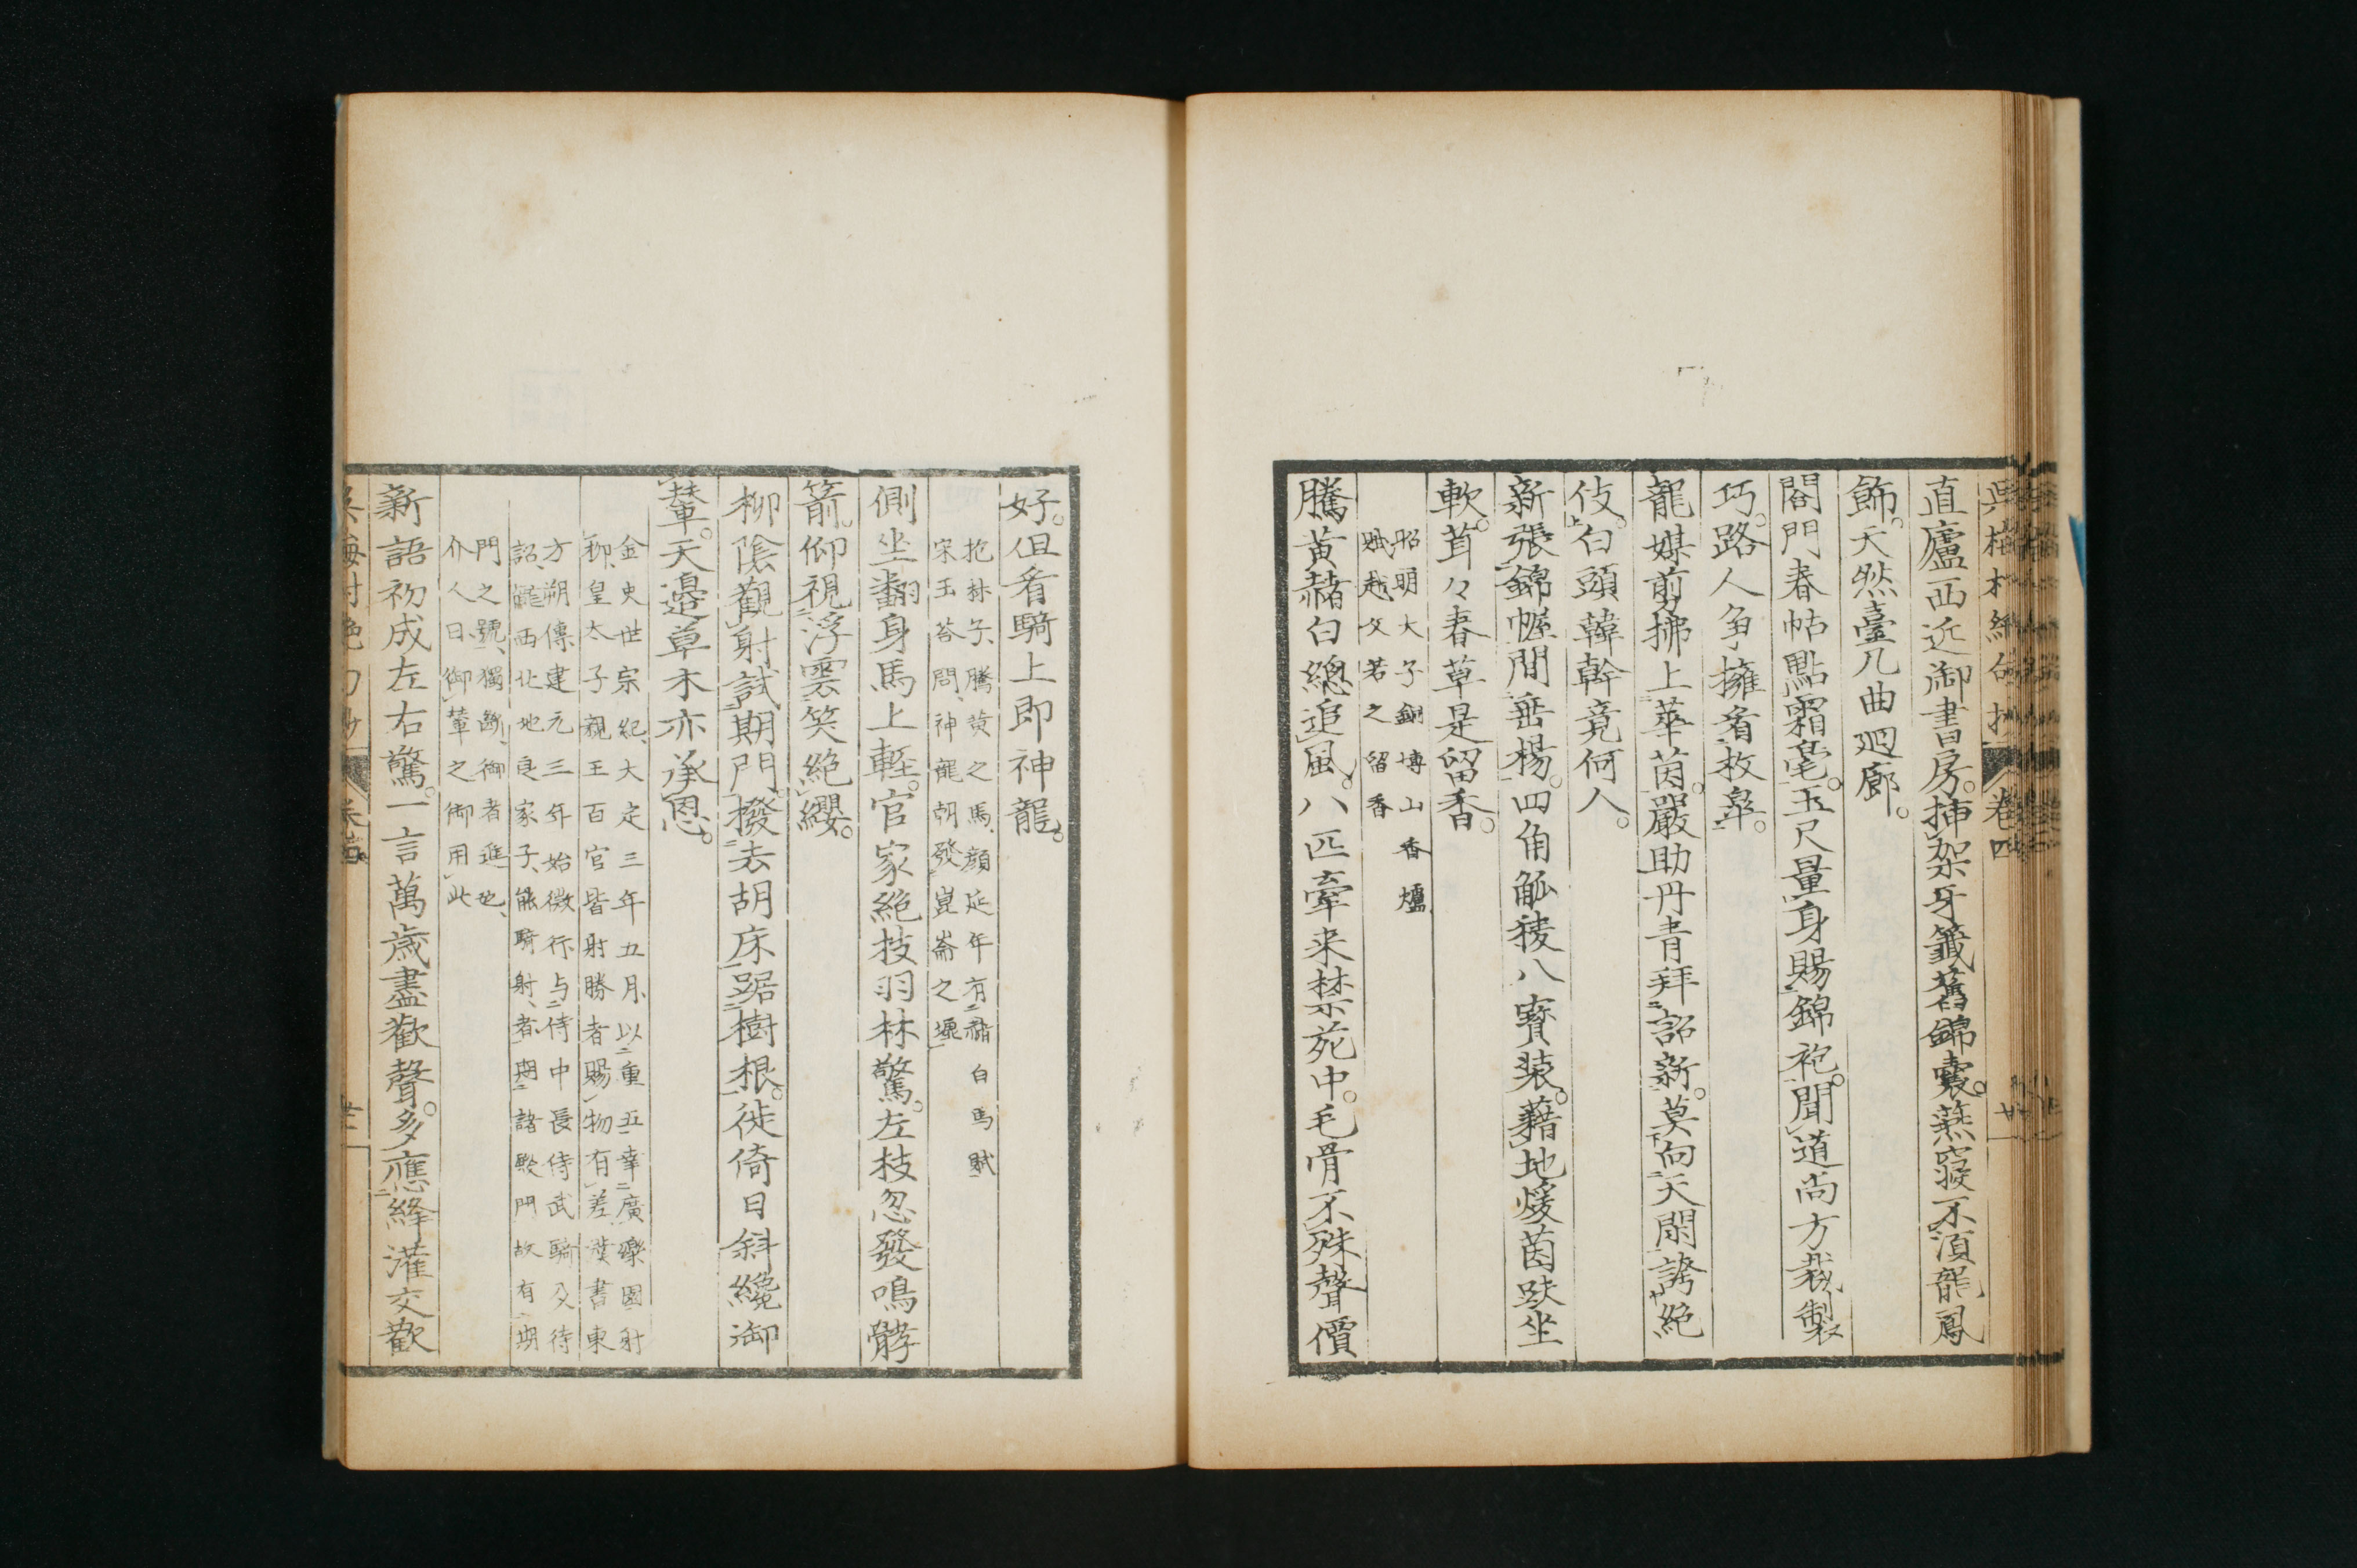 直廬西近御書房。挿架牙籤舊錦囊。燕寢不湏龍鳳
飾。天然臺几曲廻廊。
閤門春帖點霜毫。玉尺量身賜錦袍。聞道尚方裁製
巧。路人争擁看枚皐。
龍媒剪拂上華茵。嚴助丹青拜詔新。莫向天閑誇絶
伎。白頭韓幹竟何人。
新張錦幄間垂楊。四角觚稜八寳装。藉地煖茵趺坐
軟。茸々春草是留香。
昭明大子銅博山香爐
賦越文若之留香
騰黃赭白總追風。八匹牽来禁苑中。毛骨不殊聲價
好。但看騎上即神龍。
抱朴子、騰黄之馬、顔延年有赭白馬賦
宋玉荅問、神龍朝發崑崙之墟
側坐翻身馬上輕。官家絶技羽林驚。左枝忽發鳴髇
箭。仰視浮雲笑絶纓。
柳陰觀射試期門。撥去胡床踞樹根。徙倚日斜纔御
輦。天邉草木亦承恩。
金史世宗紀、大定三年五月、以重五幸廣樂園射
柳、皇太子親王百官皆射勝者賜物有差、漢書東
方朔傳建元三年始微行与侍中長侍武騎及待
詔、隴西北地良家子、能騎射、者、期諸殿門、故有期
門之號、獨斷、御者進也、
介人曰、御輦之御用此
新語初成左右驚。一言萬歳盡歡聲。多應絳灌交歡